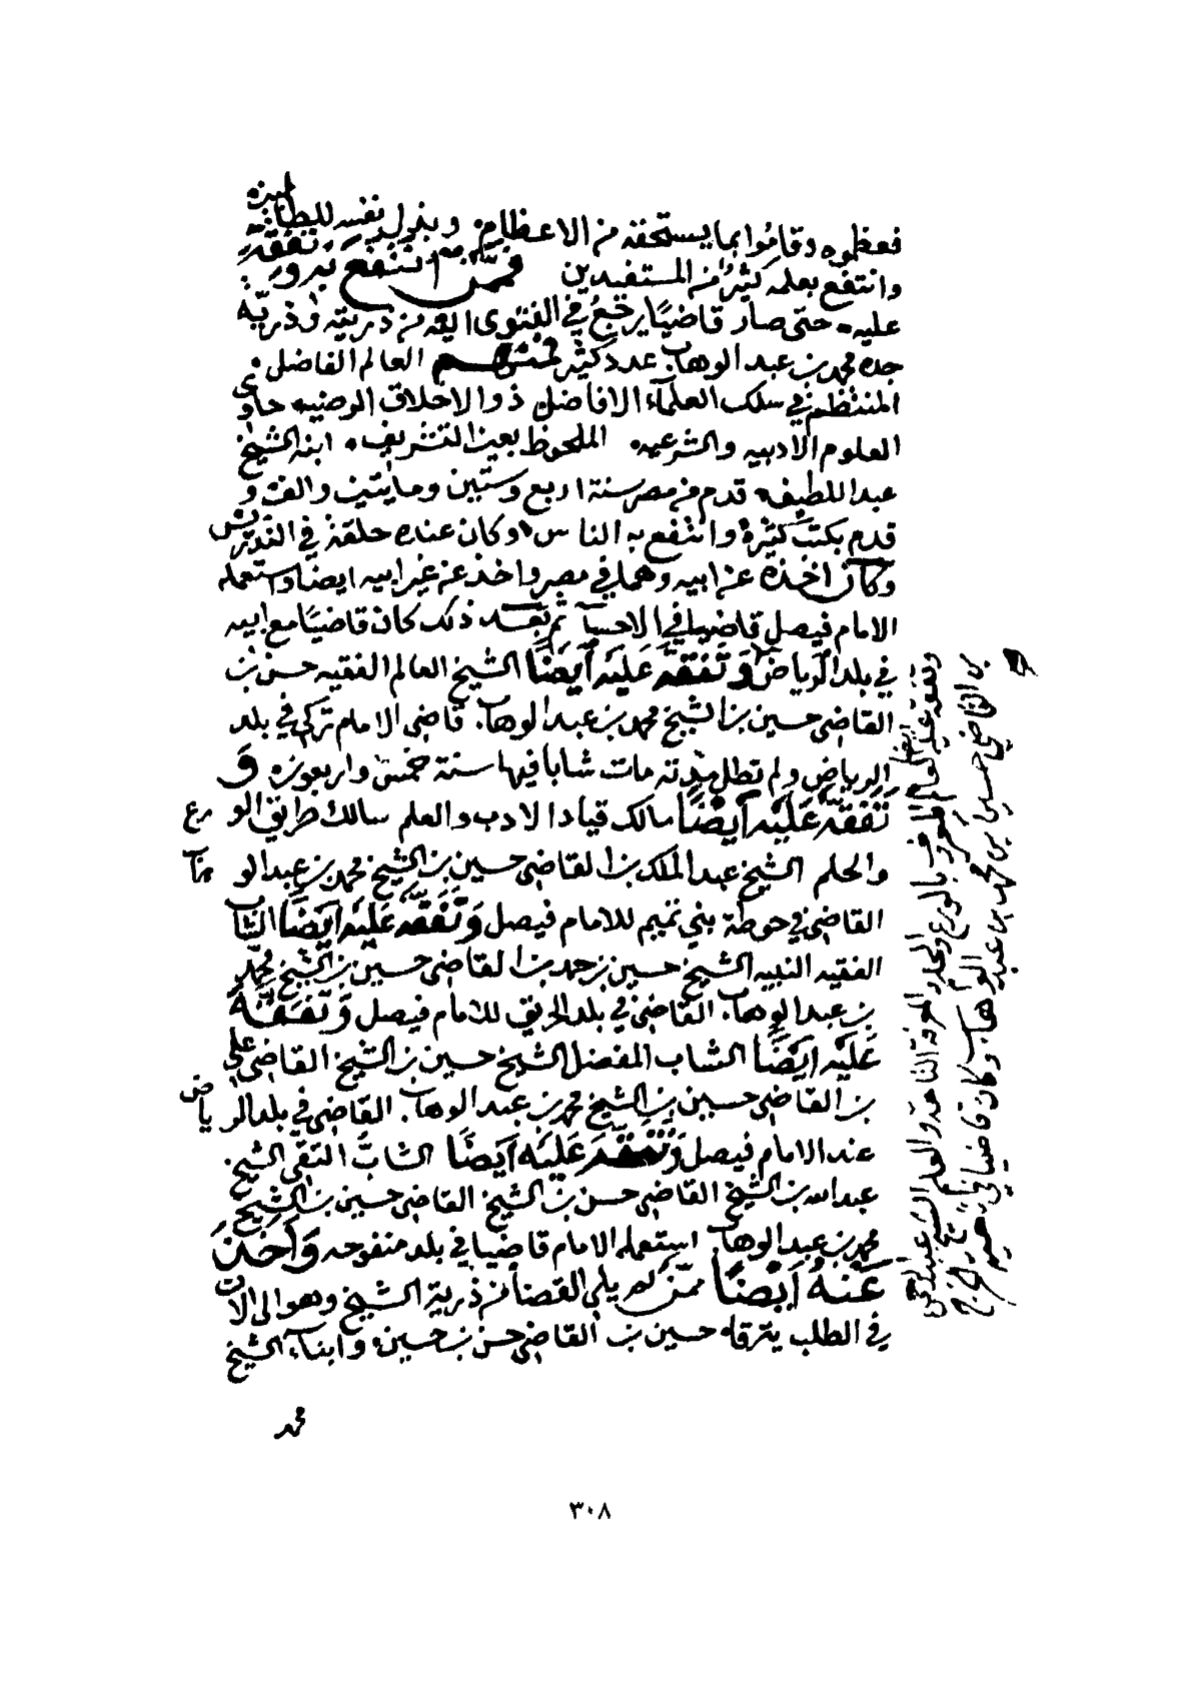 فعظموه وقاموا بما يستحقه من الاعظام وبذل نفسه للطالبين
وانتفع بعلمه كثير من المستفيدين فممن انتفع به وتفقه
عليه حتى صار قاضيا يرجع في الفتوى اليه من ذريته وذرية
جده محمد بن عبد الوهاب عدد كثير فمنهم العالم الفاضل
المنتظم في سلك العلماء الافاضل ذو الاخلاق الرضيه حاوي
العلوم الادبيه والشرعيه الملحوظ بعين التشريف ابنه الشيخ
عبد اللطيف قدم من مصر سنة اربع وستين ومايتين والف و
قدم بكتب كثيرة وانتفع به الناس وكان عنده حلقة في التدريس
وكان اخذه عن ابيه وهما في مصر واخذ عن غير ابيه ايضا واستعمله
الامام فيصل قاضيا في الاحسا ثم بعد ذلك كان قاضيا مع ابيه
في بلد الرياض وَتَفَقَّهَ عَلَيْه أَيْضًا الشيخ العالم الفقيه حسن بن
القاضي حسين بن الشيخ محمد بن عبد الوهاب قاضي الامام تركي في بلد
الرياض ولم تطل مدته مات شابا فيها سنة خمس واربعون وَ
تَفَقَّهَ عَلَيْه أَيْضًا مالك قياد الادب والعلم سالك طريق الورع
والحلم الشيخ عبد الملك بن القاضي حسين بن الشيخ محمد بن عبد الوهاب
القاضي في حوطة بني تميم للامام فيصل وَتَفَقَّهَ عَلَيْه أَيْضًا الشاب
الفقيه النبيه الشيخ حسين بن حمد بن القاضي حسين بن الشيخ محمد
بن عبد الوهاب القاضي في بلد الحريق للامام فيصل وَتَفَقَّهَ
عَلَيْه أَيْضًا الشاب المفضل الشيخ حسين بن الشيخ القاضي علي
بن القاضي حسين بن الشيخ محمد بن عبد الوهاب القاضي في بلد الرياض
عند الامام فيصل وَتَفَقَّهَ عَلَيْه أَيْضًا الشابّ التقي الشيخ
عبد الله بن الشيخ القاضي حسن بن الشيخ القاضي حسين بن الشيخ
محمد بن عبد الوهاب استعمله الامام قاضيا في بلد منفوحه وَأَخَذَ
عَنْهُ أَيْضًا ممن لم يلي القضا من ذرية الشيخ وهو الى الآن
في الطلب يترقاه حسين بن القاضي حسن بن حسين وابناء الشيخ
محمد
وتفقه عليه ايضا العالم المعروف بالورع والحلم والمعرفة التامة والعلم الشيخ عبد الرحمن
بن القاضي حسين بن محمد بن عبد الوهاب وكان قاضيا في الخرج
٣٠٨